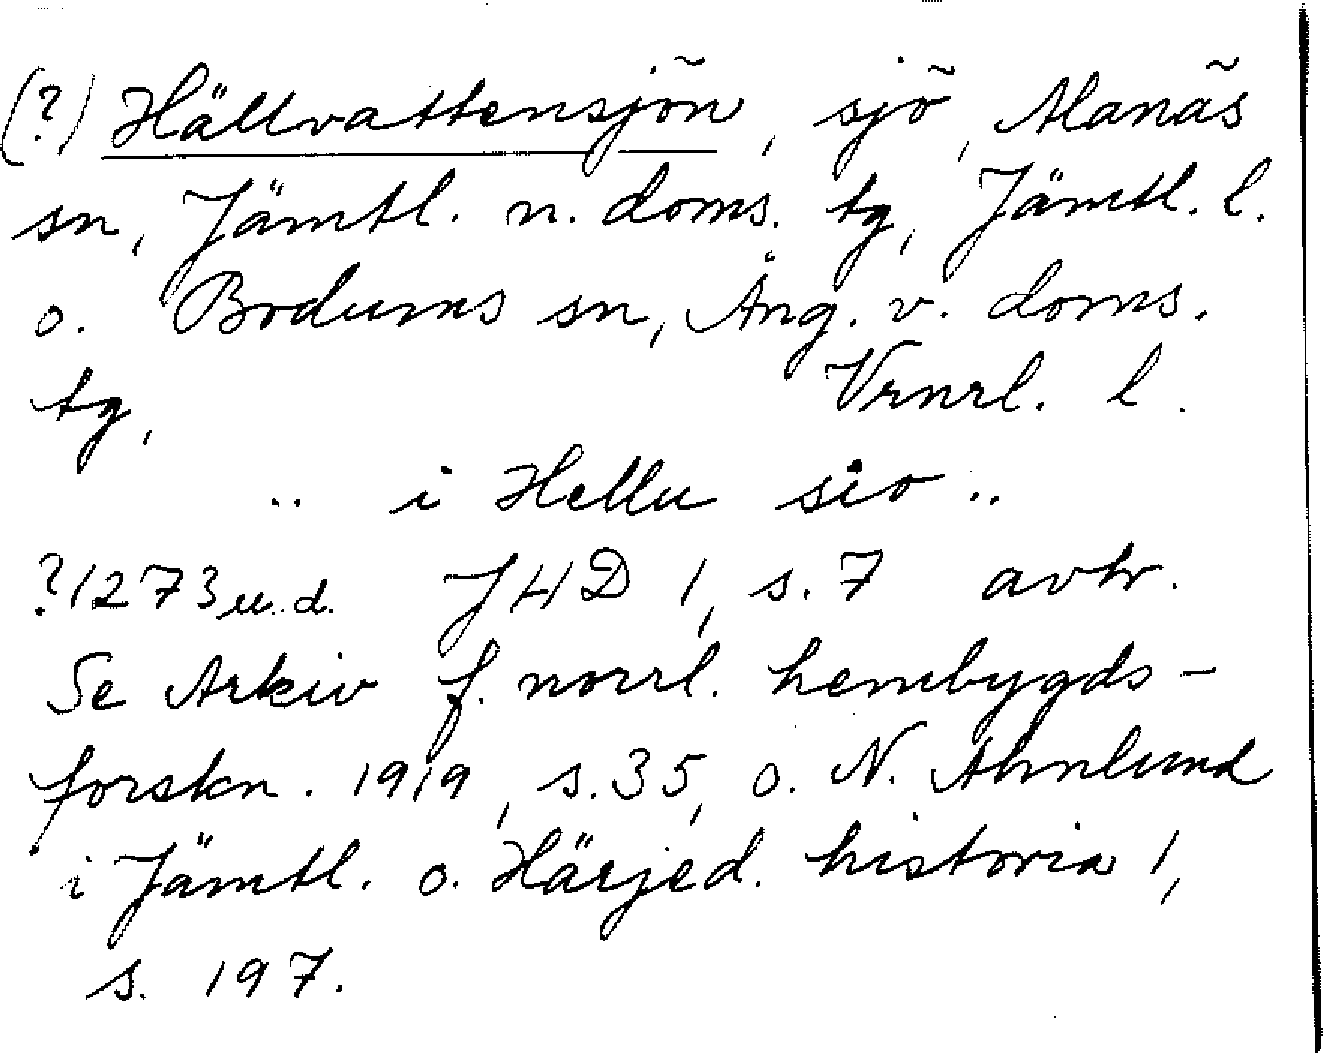 (?) Hällvattensjön, sjö, Alanäs
sn, Jämtl. n. doms. tg, Jämtl. l.
o. Bodums sn, Ång. v. doms.
tg, Vrnrl. l.
.. i Hellu sio ..
?1273 u. d. JHD 1, s. 7 avtr.
Se Arkiv f. norrl. hembygds-
forskn. 1919, s. 35, o. N. Ahnlund
i Jämtl. o. Härjed. historia 1,
s. 197.